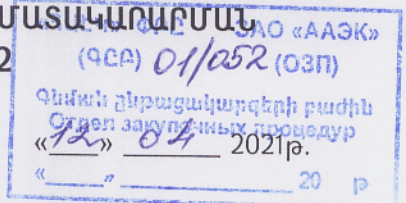 ՄԱՏԱԿԱՐԱՐՄԱՆ
ЗАО «ААЭК»
2
(ԳԸԲ) 01/052 (ОЗП)
Գնման ընթացակարգերի բաժին
Отдел закупочных процедур
«12» 04 2021թ.
«____» ____________ 20 р